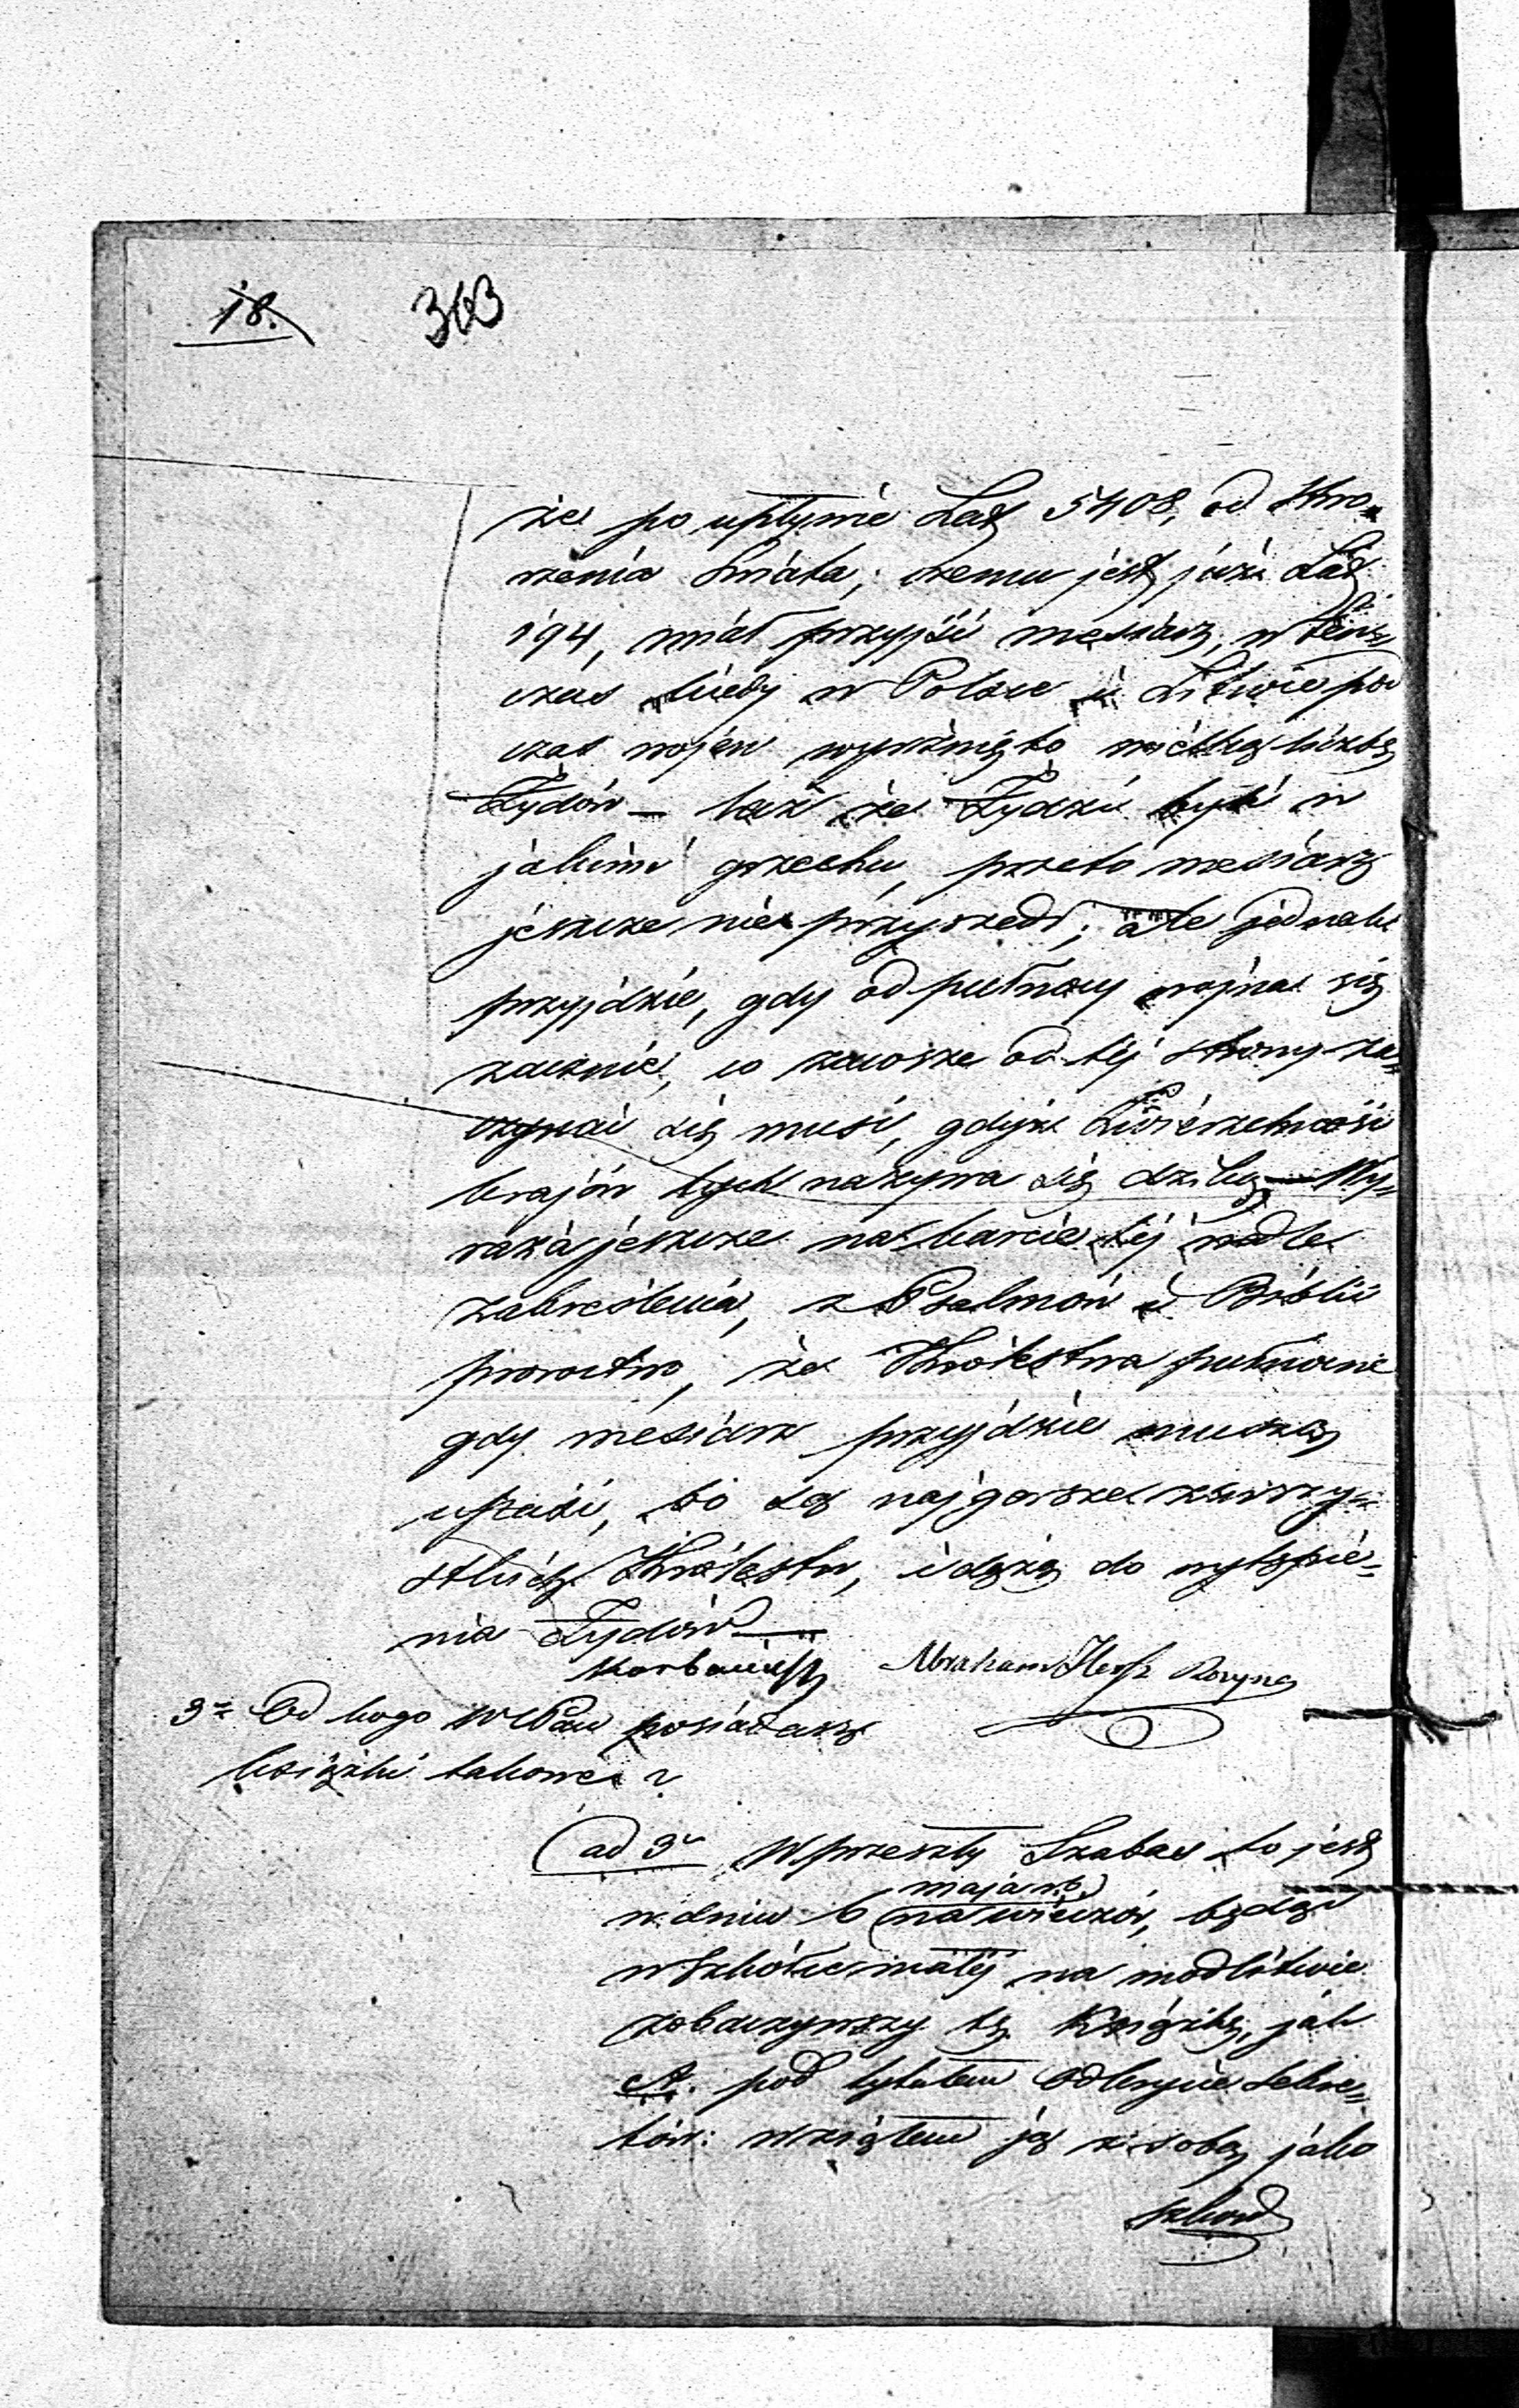 18. 363
że po upłynie Lat 5408, od Stwo„
rzenia Świata; czemu jest już Lat
194, miał przyjść messiasz, w ten„
czas kiedy w Polsce i Litwie pod
czas wojen wyrżnięto wielką liczbę
Żydów — lecz że Żydzi byli w
jakimś grzechu, przeto messiasz
jeszcze nie przyszedł; ale jednak
przyjdzie, gdy od pułnocy wojna się
zacznie, co zawsze od tej strony za„
czynać się musi, gdyż Zwierzchność
krajów tych nazywa się dziką — Wy„
raża jeszcze na karcie tej podle
zakreślenia, z Psalmów i Biblii
proroctwo, że Królestwa pułnocne
gdy mesiasz przyjdzie muszą
upaść, bo są najgorsze z wszy„
stkich Królestw, i dążą do wytępie„
nia Żydów —
Abraham Hersz
3° Od kogo WPan posiadasz
książki takowe?
ad 3° W przeszły Szabas to jest
w dniu 6 maja r. b. na wieczór, będąc
w Szkółce małej na modlitwie
zobaczywszy tę Książkę, jak
A. pod tytułem Odkrycie Sekre„
tów: wziąłem ją z sobą jako